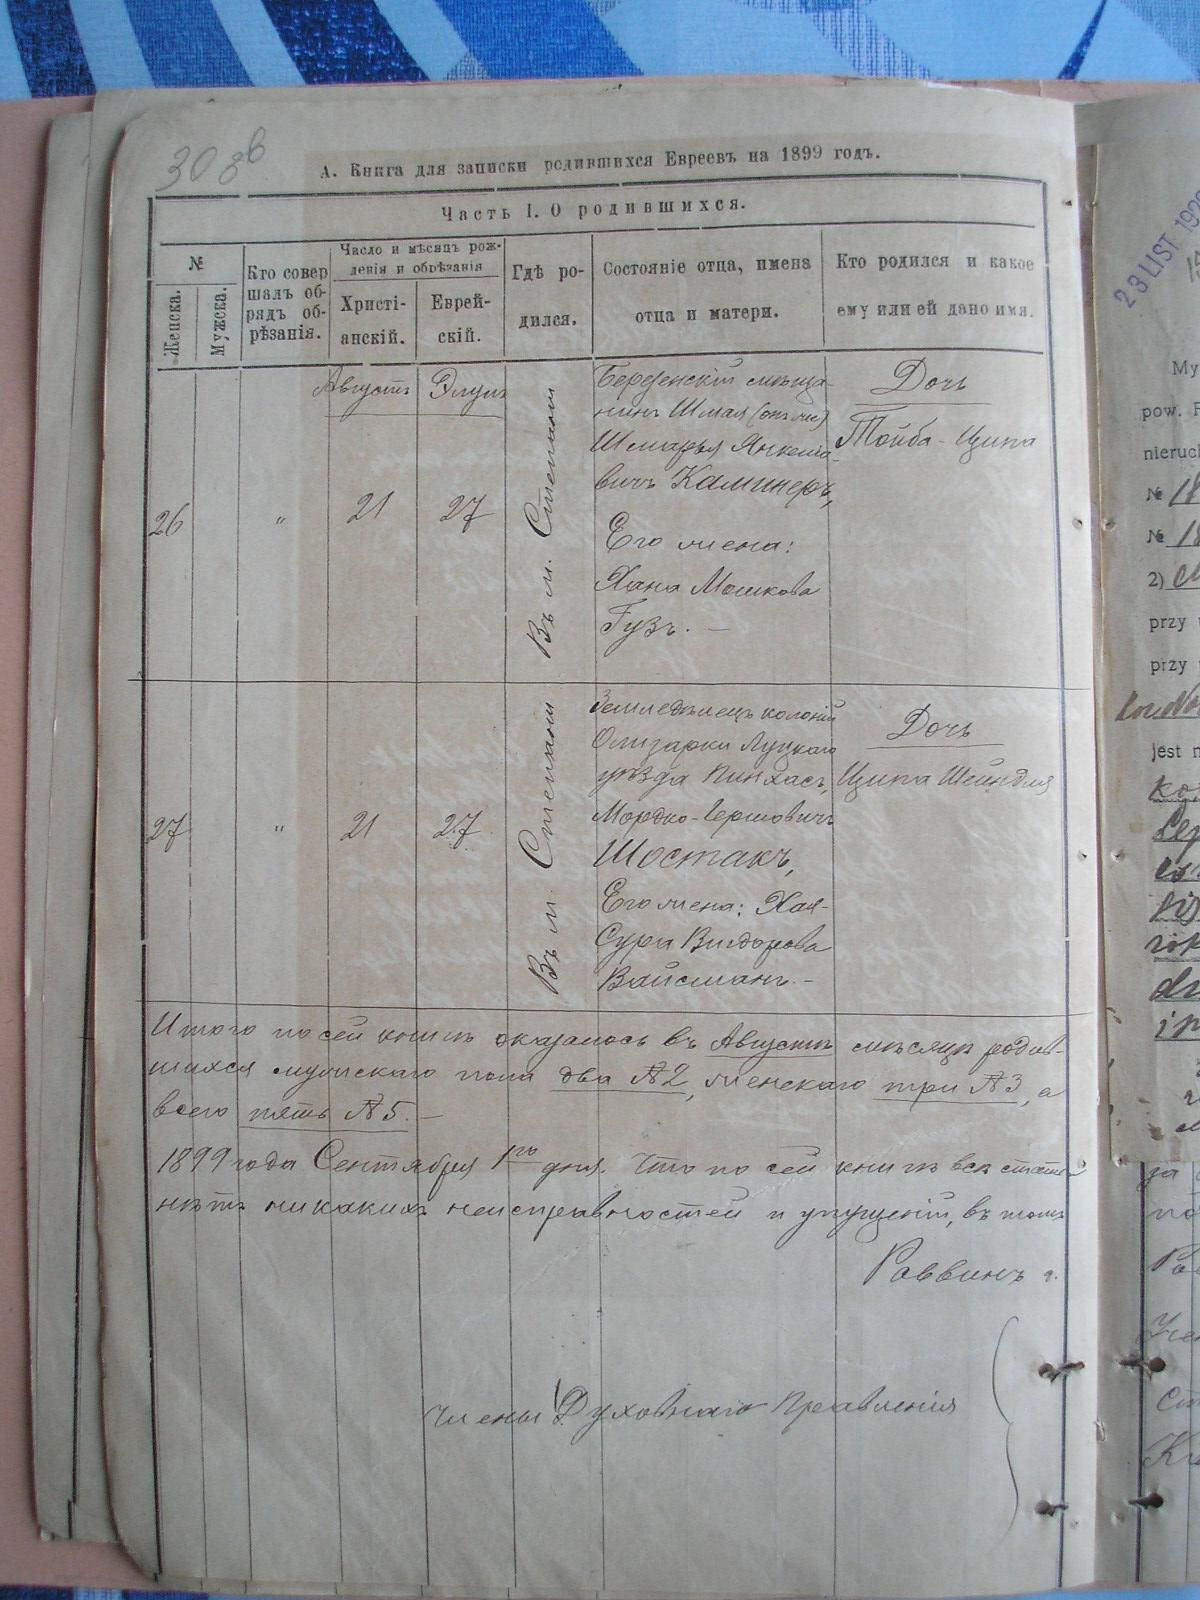 303б
А. Книга для записки родившихся Евреевъ на 1899 годъ.
Часть I. О родившихся.
№
Женска.
Мужска.
Кто совер
шалъ об-
рядъ об-
рѣзанія.
Число и мѣсяцъ рож-
денія и обрѣзанія
Христі-
анскій.
Еврей-
скій.
Гдѣ ро-
дился.
Состояніе отца, имена
отца и матери.
Кто родился и какое
ему или ей дано имя.
Августъ
Элулъ
26
"
21
27
Въ м. Степани
Березенскій мѣща-
нинъ Шмая (онъ же)
Шмарья Янкеле-
вичъ Каминеръ,
Его жена:
Хана Мошкова
Гузъ. —
Дочь
Тойба-Ципа
27
"
21
27
Въ м. Степани
Земледѣлецъ колоніи
Олизарки Луцкаго
уѣзда Пинхасъ,
Мордко-Гершовичъ
Шостакъ,
Его жена: Хая-
Сура Вигдорова
Вайсманъ. —
Дочь
Ципа Шейндля
Итого по сей книгѣ оказалось въ Августѣ мѣсяцѣ родив-
шихся мужскаго пола два № 2, женскаго три № 3, а
всего пять № 5. —
1899 года Сентября 1го дня. Что по сей книгѣ всѣ статьи
нѣтъ никакихъ неисправностей и упущеній, въ томъ
Раввинъ
Члены Духовнаго Правленія
23 LIST 192
My
pow.
nieruch
№ 18
№ 18
2)
przy
przy
jest